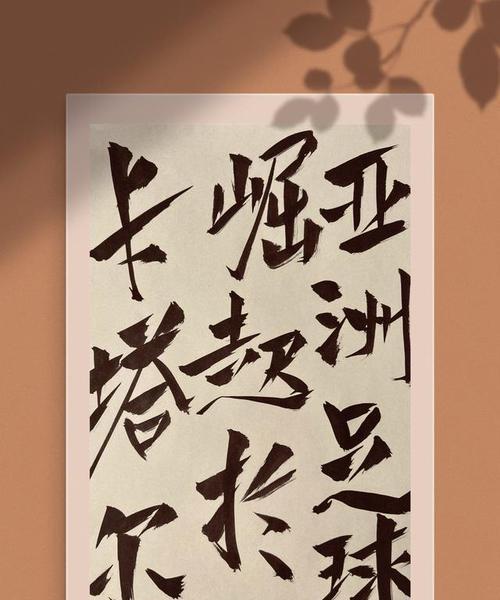 亚洲足球
崛起於
卡塔尔